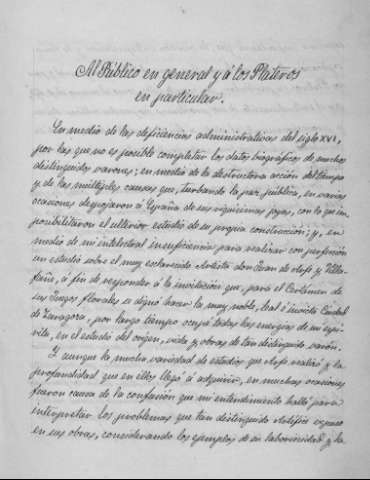 Al Público en general y á los Plateros
en particular.
En medio de las deficiencias administrativas del siglo XVI,
por las que no es posible completar los datos biográficos de muchos
distinguidos varones; en medio de la destructora acción del tiempo
y de las múltiples causas que, turbando la paz pública, en varias
ocasiones despojaron á España de sus riquísimas joyas, con lo que im-
posibilitaron el ulterior estudio de su propia construcción; y, en
medio de mi intelectual insuficiencia para realizar con perfección
un estudio sobre el muy esclarecido Artista don Juan de Arfe y Villa-
fañe, á fin de responder á la invitación que, para el Certámen de
sus Juegos florales se dignó hacer la muy noble, leal é invicta Ciudad
de Zaragoza, por largo tiempo ocupé todas las energías de mi espí-
ritu, en el estudio del origen, vida y obras de tan distinguido varón.
Y aunque la mucha variedad de estudios que Arfe realizó y la
profundidad que en ellos llegó á adquirir, en muchas ocasiones
fueron causa de la confusión que mi entendimiento halló para
interpretar los problemas que tan distinguido Artífice expuso
en sus obras, considerando los ejemplos de su laboriosidad y la